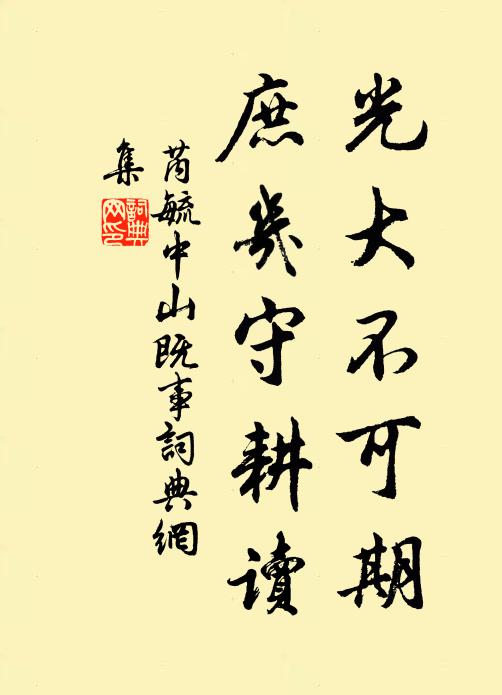 光大不可期
庶幾守耕讀
芮毓中山既事詞典網
集
詞典
网印